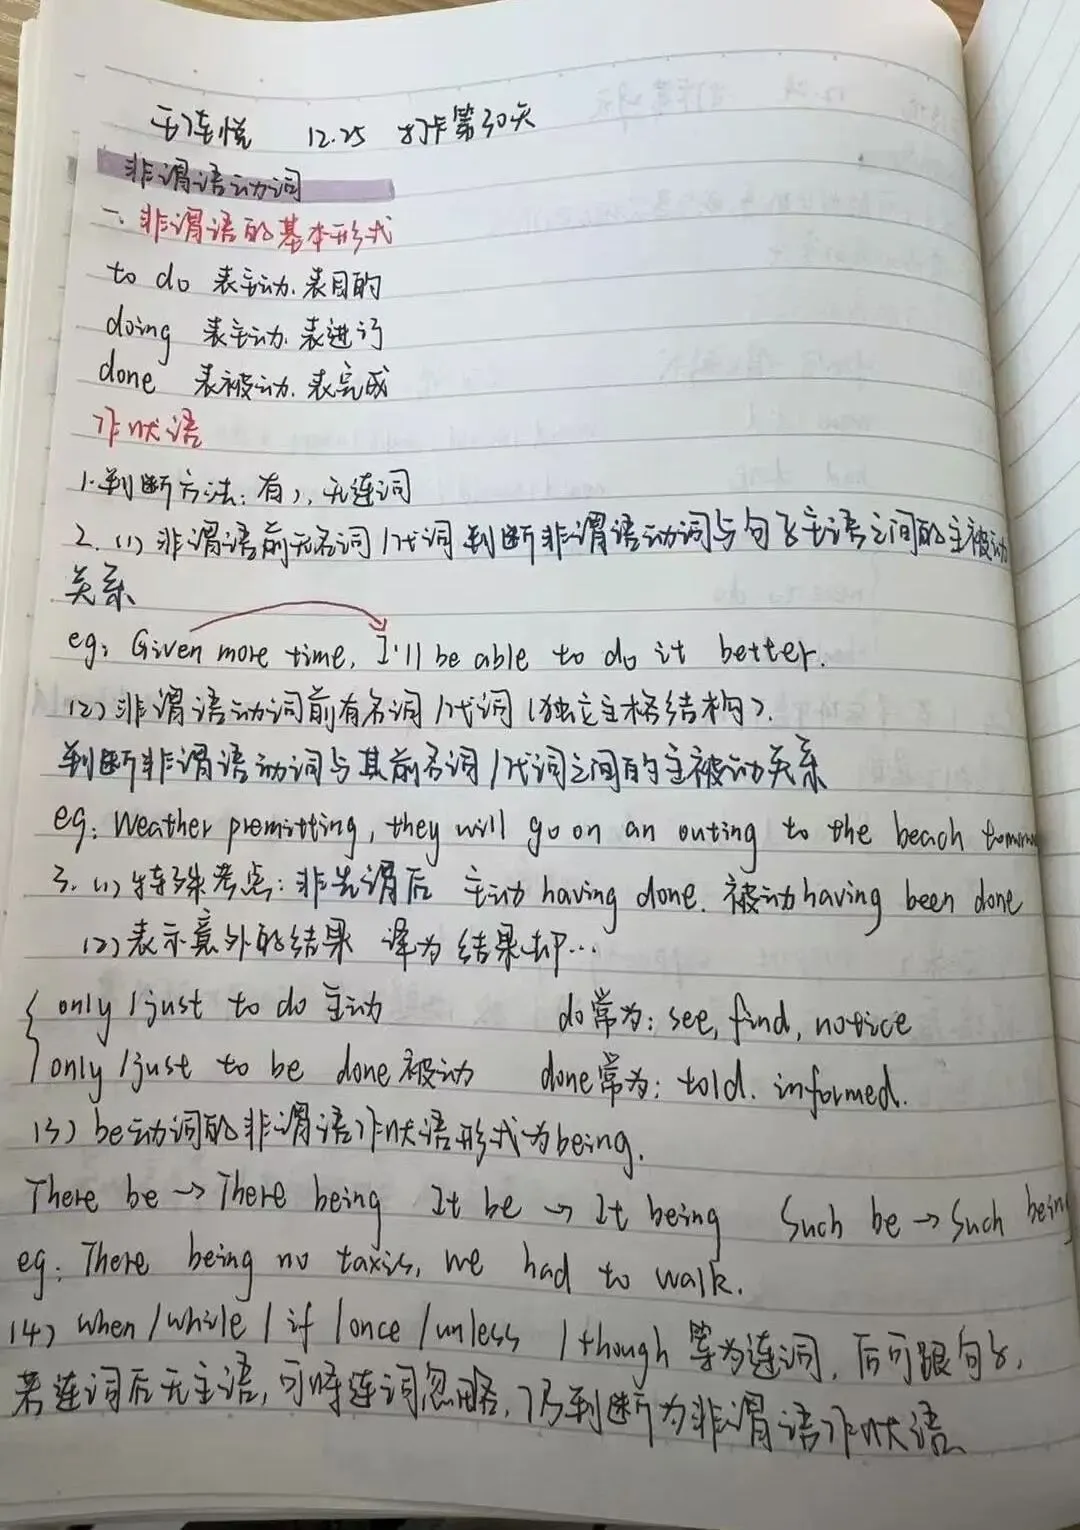 王连悦 12.25 打卡第30天
非谓语动词
一、非谓语的基本形式
to do 表主动.表目的
doing 表主动.表进行
done 表被动.表完成
作状语
1.判断方法:有,,无连词
2.(1)非谓语前无名词/代词判断非谓语动词与句子主语之间的主被动
关系
eg: Given more time, I'll be able to do it better.
(2)非谓语动词前有名词/代词(独立主格结构).
判断非谓语动词与其前名词/代词之间的主被动关系
eg: Weather premitting, they will go on an outing to the beach tomorrow
3.(1)特殊考点:非先谓后 主动having done. 被动having been done
(2)表示意外的结果 译为 结果却…
only/just to do 主动 do常为: see, find, notice
only/just to be done 被动 done常为: told. informed.
(3) be动词的非谓语作状语形式为being.
There be → There being It be → It being Such be → Such being
eg: There being no taxis, we had to walk.
(4) when/while/if/once/unless/though 等为连词, 后可跟句子,
若连词后无主语, 可将连词忽略, 仍判断为非谓语作状语